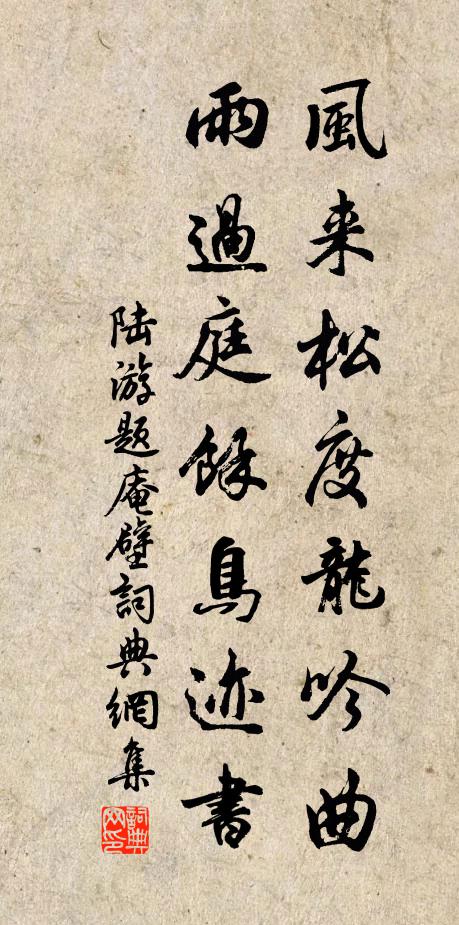 風来松度龍吟曲
雨過庭餘鳥迹書
陆游題庵壁詞典網集
詞典网印